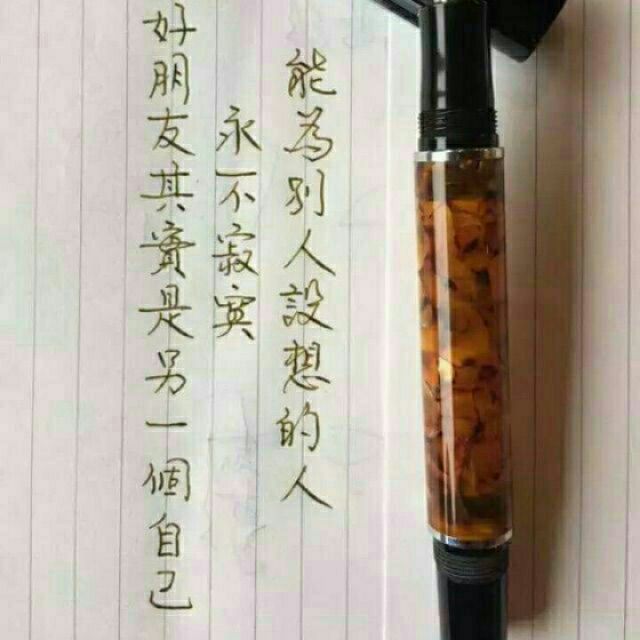 能為別人設想的人
永不寂寞
好朋友其實是另一個自己